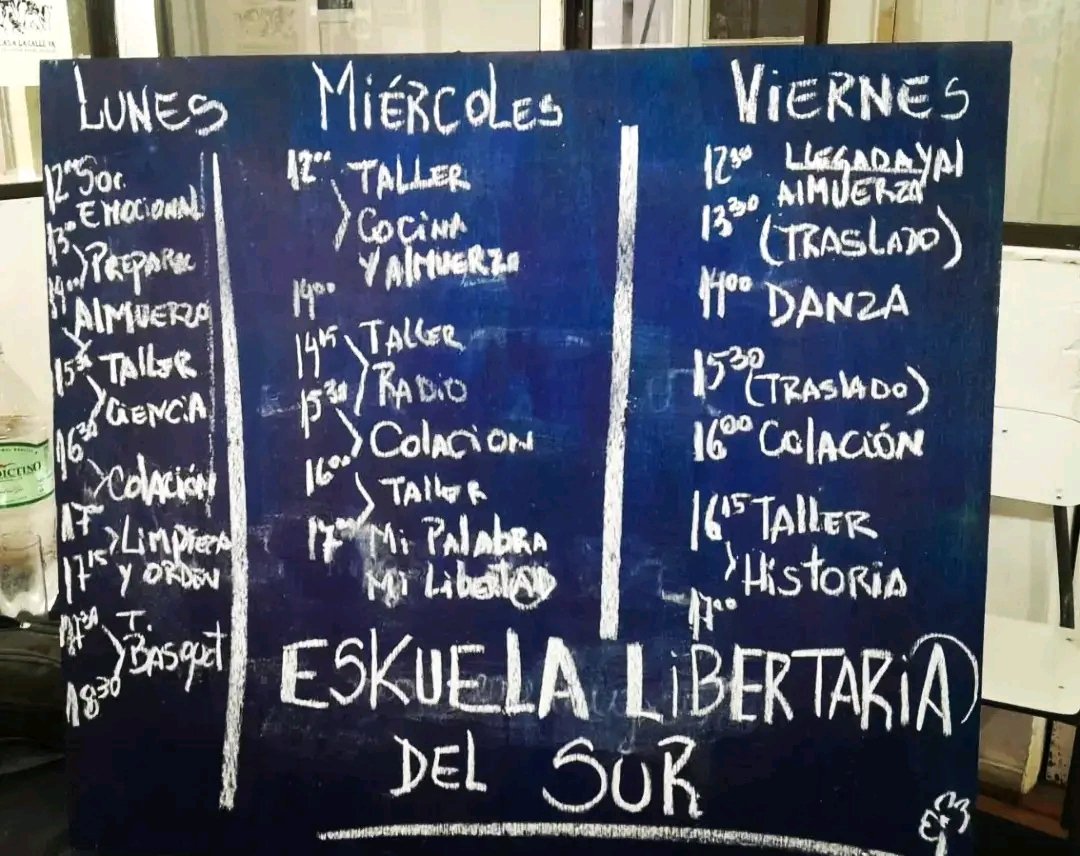 LUNES
12°° Soc.
EMOCIONAL
13°°
PREPARAR
14°°
ALMUERZO
15³⁰ TALLER
CIENCIA
16³⁰
COLACIÓN
17°°
LIMPIEZA
17¹⁵ Y ORDEN
17³⁰ T.
BASQUET
18³⁰
MIÉRCOLES
12°° TALLER
COCINA
Y ALMUERZO
14°°
14¹⁵ TALLER
RADIO
15³⁰
COLACION
16°°
TALLER
17°° Mi PALABRA
Mi LIBERTAD
VIERNES
12³⁰ LLEGADA Y AL
ALMUERZA
13³⁰ (TRASLADO)
14⁰⁰ DANZA
15³⁰ (TRASLADO)
16⁰⁰ COLACIÓN
16¹⁵ TALLER
HISTORIA
17°°
ESKUELA LIBERTARIA
DEL SUR